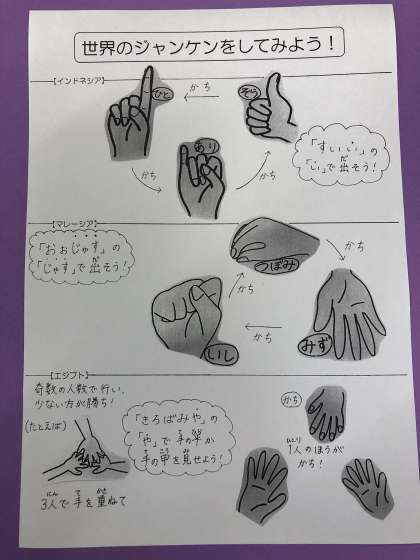 世界のジャンケンをしてみよう！
【インドネシア】
ひと
かち
ぞう
あり
かち
かち
「すいい」の
「い」で出そう！
だ
【マレーシア】
「おぉじゅす」の
「じゅす」で出そう！
だ
つぼみ
かち
かち
いし
かち
みず
【エジプト】
奇数の人数で行い、
少ない方が勝ち！
(たとえば)
3人で手を重ねて
にん
て
かさ
「きろばみや」の
「や」で手の平か
手の甲を見せよう！
かち
1人のほうが
かち！
ひとり